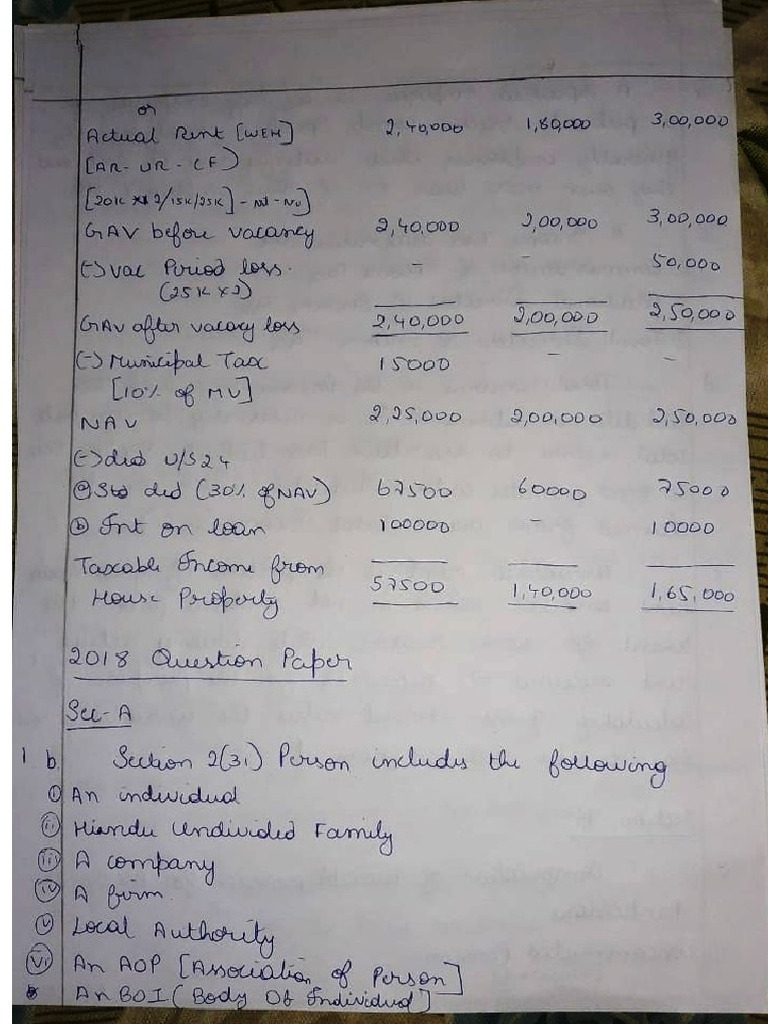 or
Actual Rent [WEH] 2,40,000 1,80,000 3,00,000
[AR-UR-LF)
[20K x 12/15K/25K] - Nil - Nil]
GAV before vacancy 2,40,000 2,00,000 3,00,000
(-) Vac Period loss. - - 50,000
(25K x 2)
GAV after vacacy loss 2,40,000 2,00,000 2,50,000
(-) Municipal Tax 15000 - -
[10% of MV]
NAV 2,25,000 2,00,000 2,50,000
(-) ded U/S 24
(a) Std ded (30% of NAV) 67500 60000 75000
(b) Int on loan 100000 - 10000
Taxable Income from
House Property 57500 1,40,000 1,65,000
2018 Question Paper
Sec-A
1 b. Section 2(31) Person includes the following
(i) An individual
(ii) Hiandu Undivided Family
(iii) A company
(iv) A firm
(v) Local Authority
(vi) An AOP [Association of Person]
An BOI (Body Of Individual)